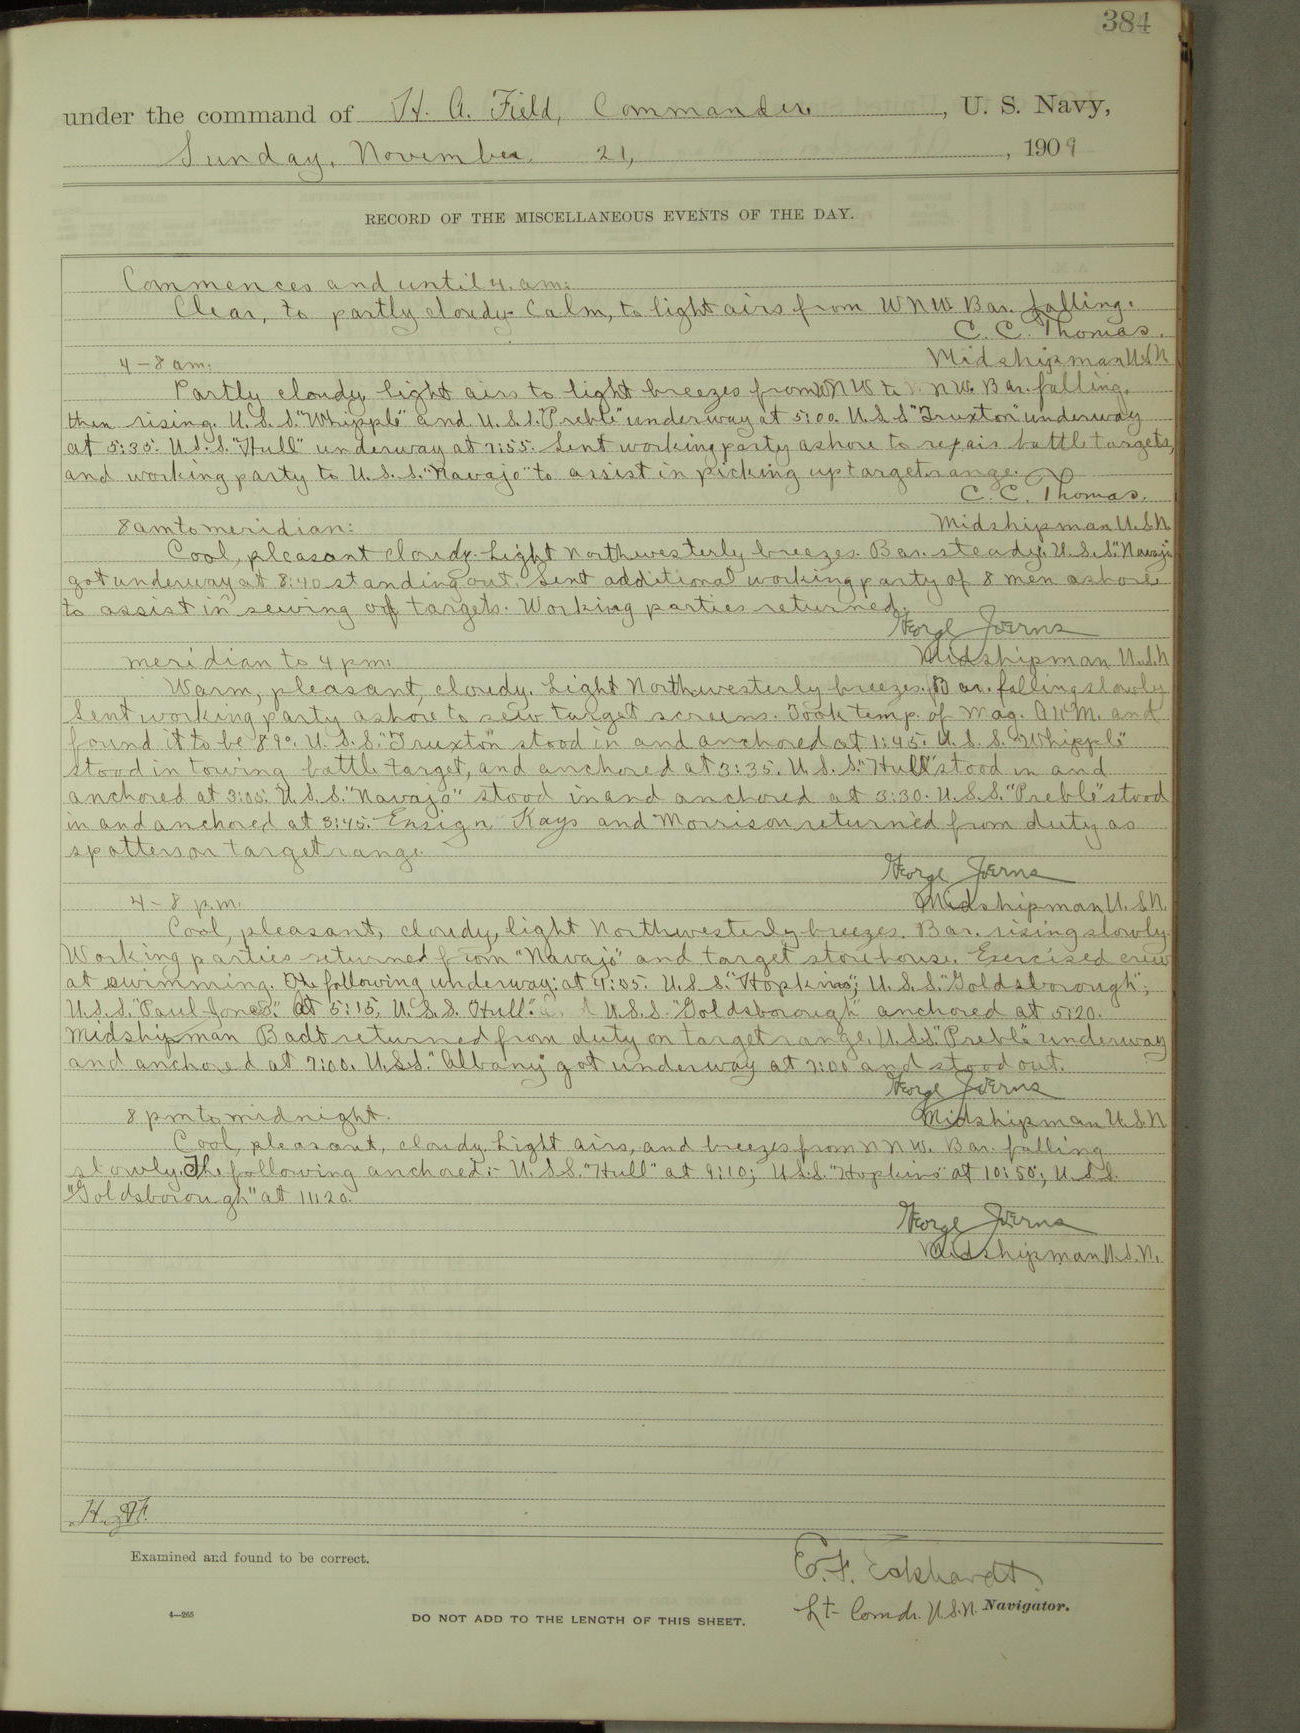 384
under the command of H. A. Field, Commander, U. S. Navy,
Sunday, November 21, 1909
RECORD OF THE MISCELLANEOUS EVENTS OF THE DAY.
Commences and until 4. am:
Clear, to partly cloudy. Calm, to light airs from WNW. Bar. falling.
C. C. Thomas.
Midshipman U.S.N.
4 - 8 am:
Partly cloudy light airs to light breezes from WNW to NW. Bar. falling,
then rising. U.S.S. "Whipple" and U.S.S. "Preble" underway at 5:00. U.S.S "Truxton" underway
at 5:35. U.S.S. "Hull" underway at 7:55. Sent working party ashore to repair battle targets,
and working party to U.S.S. "Navajo" to assist in picking up target range.
C. C. Thomas.
Midshipman U.S.N.
8 am to meridian:
Cool, pleasant cloudy. Light Northwesterly breezes. Bar. steady. U.S.S. "Navajo"
got underway at 8:40 standing out. Sent additional working party of 8 men ashore
to assist in sewing of targets. Working parties returned.
George Joerns
Midshipman U.S.N
meridian to 4 pm:
Warm, pleasant, cloudy. Light Northwesterly breezes. Bar. falling slowly
Sent working party ashore to sew target screens. Took temp. of Mag. A.W.M. and
found it to be 89°. U.S.S. "Truxton" stood in and anchored at 1:45. U.S.S. "Whipple"
stood in towing battle target, and anchored at 3:35. U.S.S. "Hull" stood in and
anchored at 3:05. U.S.S. "Navajo" stood in and anchored at 3:30. U.S.S. "Preble" stood
in and anchored at 3:45. Ensign Kays and Morrison returned from duty as
spotters on target range.
George Joerns
Midshipman U.S.N.
4 - 8 p.m.
Cool, pleasant, cloudy, light Northwesterly breezes. Bar. rising slowly.
Working parties returned from "Navajo" and target storehouse. Exercised crew
at swimming. The following underway: at 4:05. U.S.S. "Hopkins"; U.S.S. "Goldsborough";
U.S.S. "Paul Jones." At 5:15, U.S.S. Hull." U.S.S. "Goldsborough" anchored at 5:20.
Midshipman Badt returned from duty on target range. U.S.S. "Preble" underway
and anchored at 7:00. U.S.S. "Albany" got underway at 7:00 and stood out.
George Joerns
Midshipman U.S.N
8 pm to midnight.
Cool, pleasant, cloudy. Light airs, and breezes from NNW. Bar. falling
slowly. The following anchored:- U.S.S. "Hull" at 9:10; U.S.S. "Hopkins" at 10:50; U.S.S.
"Goldsborough" at 11:20.
George Joerns
Midshipman U.S.N.
Examined and found to be correct.
E. F. Eckhardt
Lt- Comdr. U.S.N. Navigator.
4—265
DO NOT ADD TO THE LENGTH OF THIS SHEET.